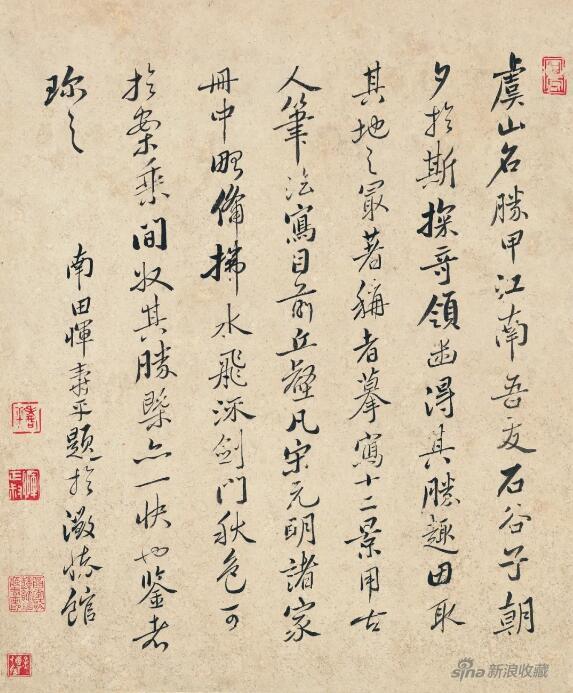 虞山名勝甲江南吾友石谷子朝
夕於斯探奇領幽得其勝趣因取
其地之最著稱者摹寫十二景用古
人筆法寫目前丘壑凡宋元明諸家
冊中略備拂水飛流劍門秋色可
於案乘間收其勝槩亦一快也鑒者
珍之
南田惲壽平題於澂懷館
壽平
sina 新浪收藏